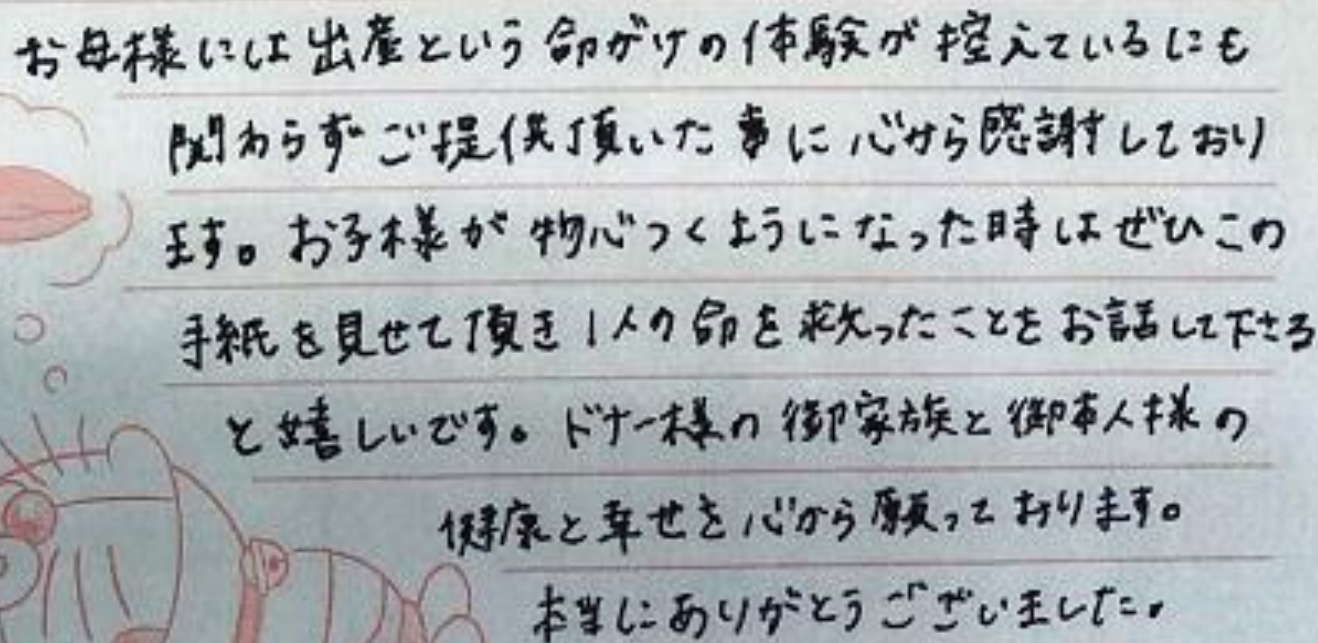 お母様には出産という命がけの体験が控えているにも
関わらずご提供頂いた事に心から感謝しており
ます。お子様が物心つくようになった時はぜひこの
手紙を見せて頂き1人の命を救ったことをお話して下さる
と嬉しいです。ドナー様の御家族と御本人様の
健康と幸せを心から願っております。
本当にありがとうございました。